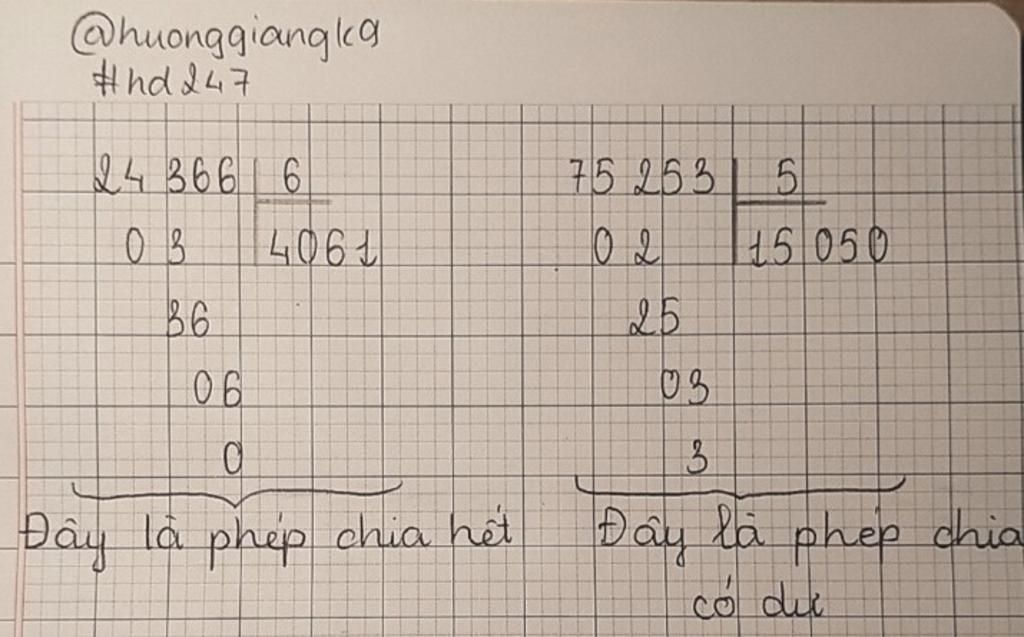 @huonggiangk9
#hd247
24 366 6
0 3 4061
36
06
0
Đây là phép chia hết
75 253 5
0 2 15 050
25
03
3
Đây là phép chia
có dư